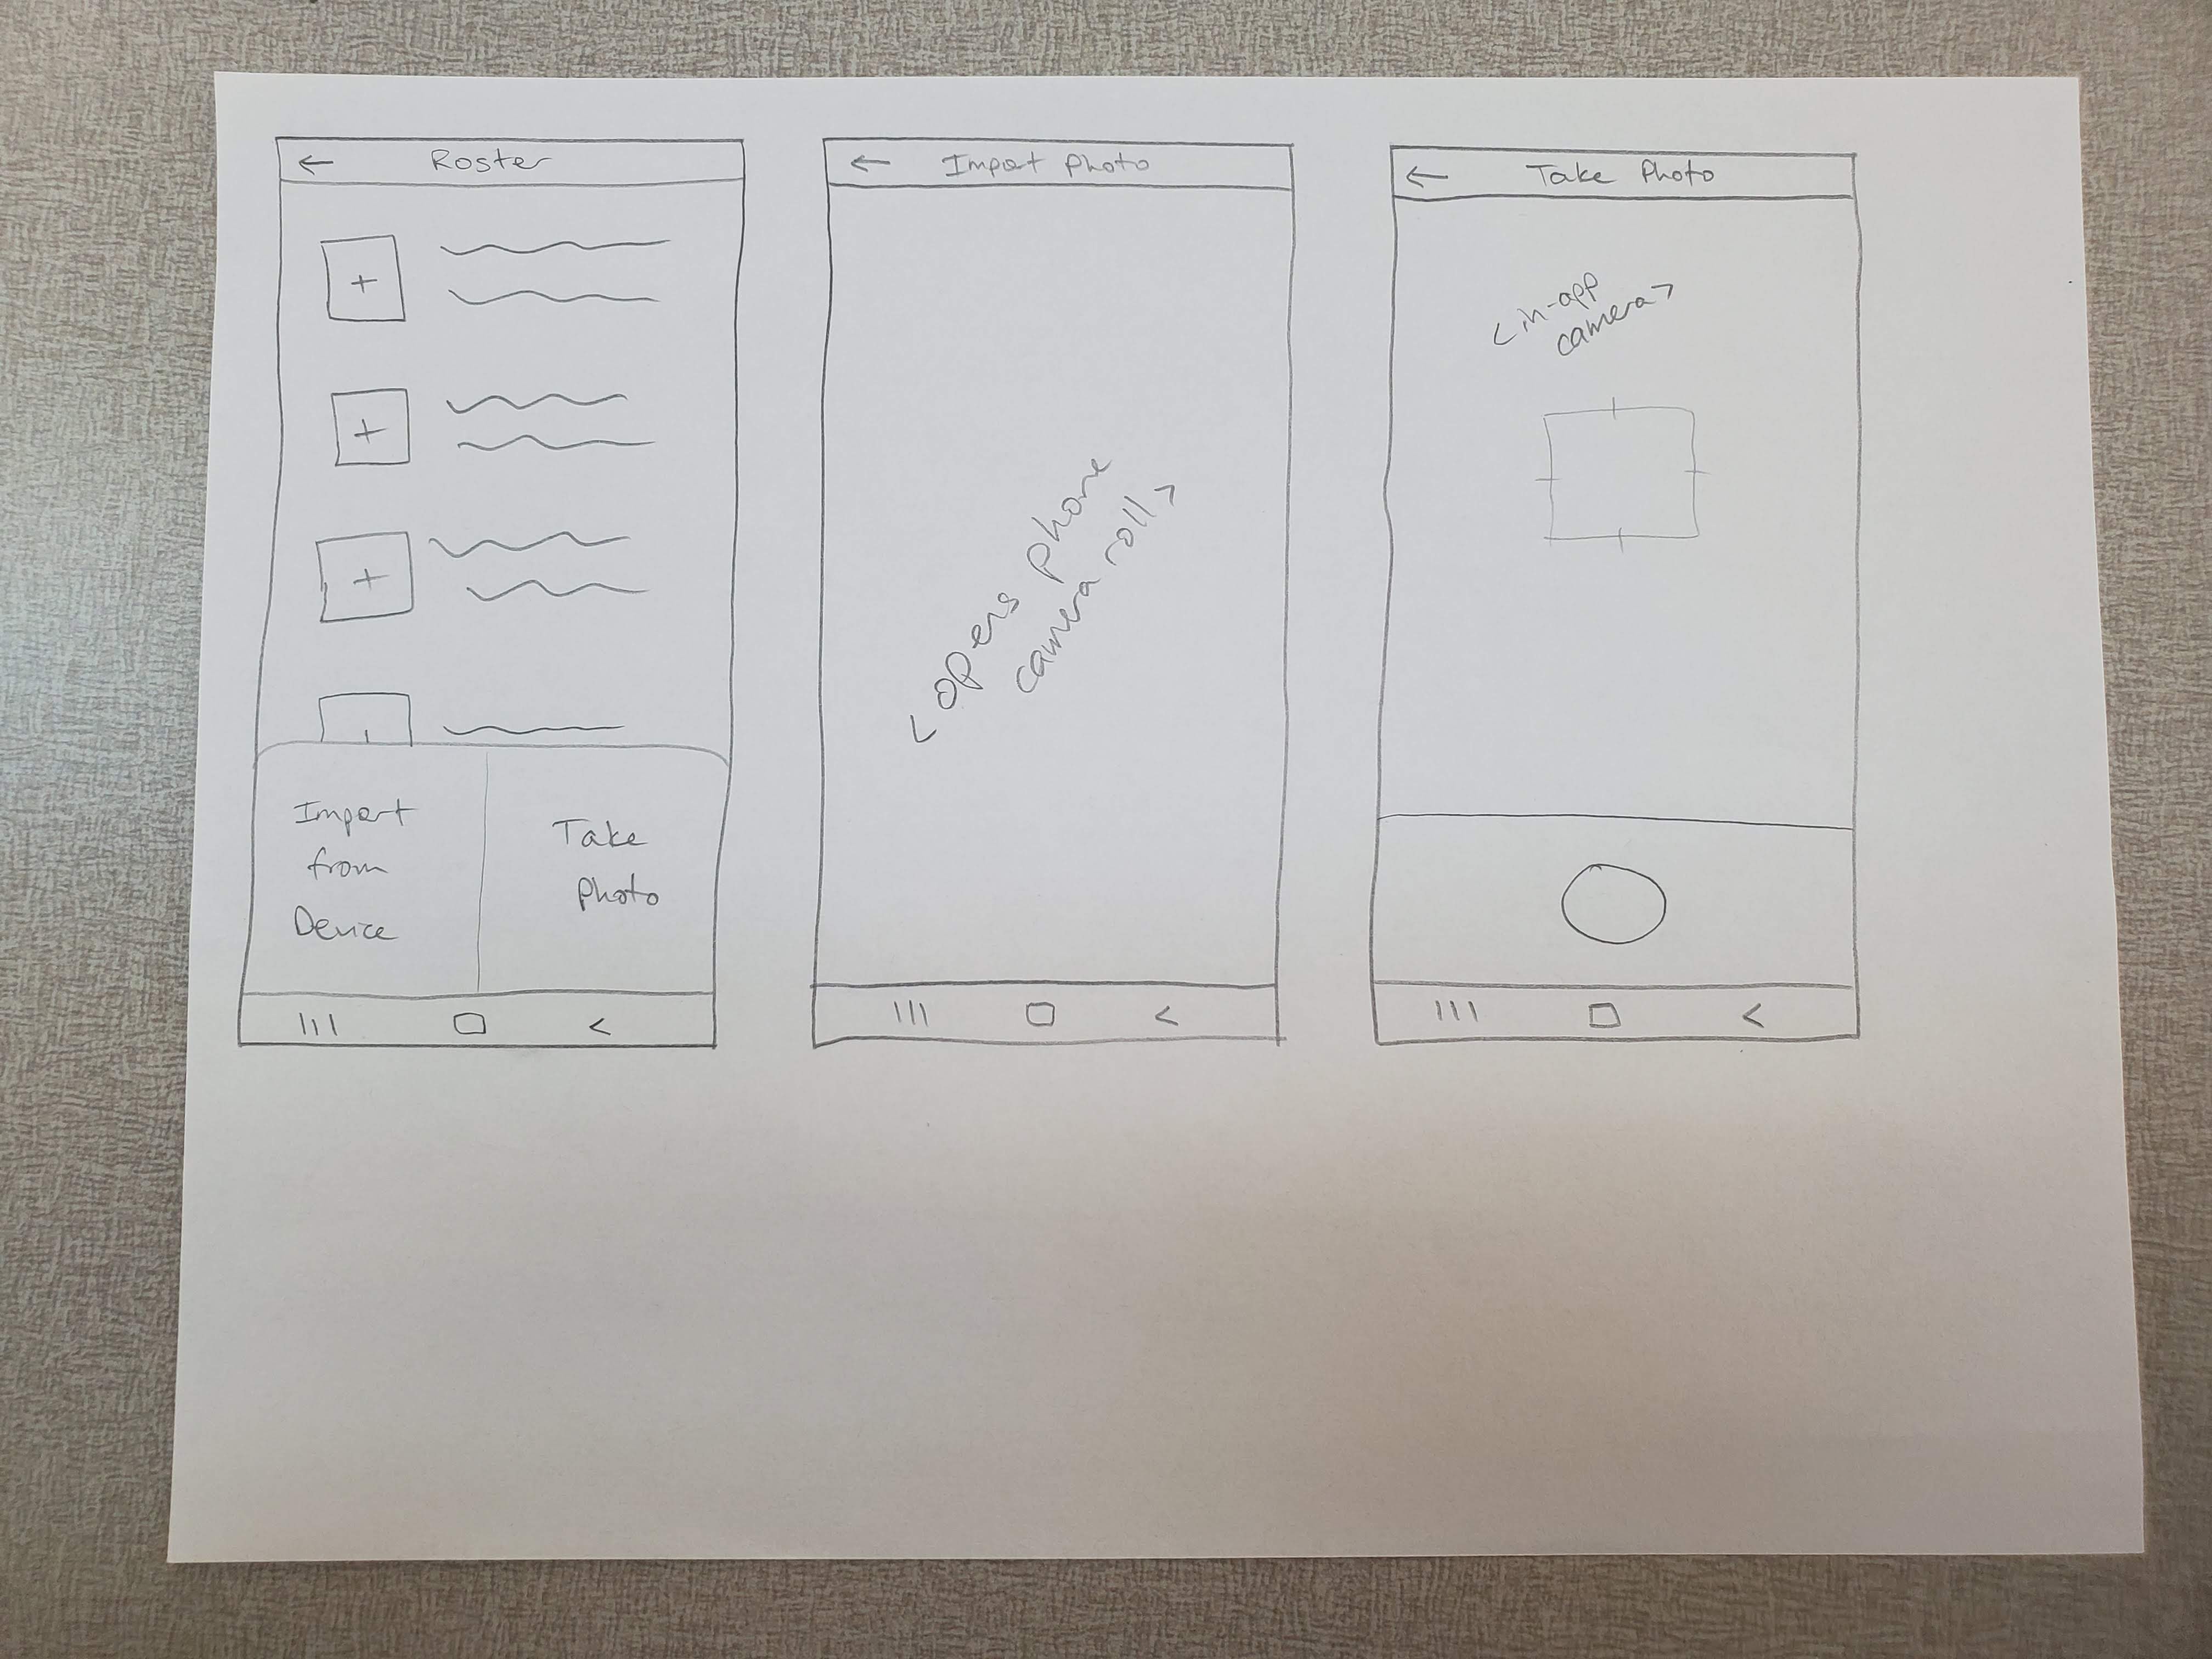 ← Roster
+
+
+
Import
from
Device
Take
Photo
← Import Photo
<opens phone
camera roll>
← Take Photo
<in-app
camera>